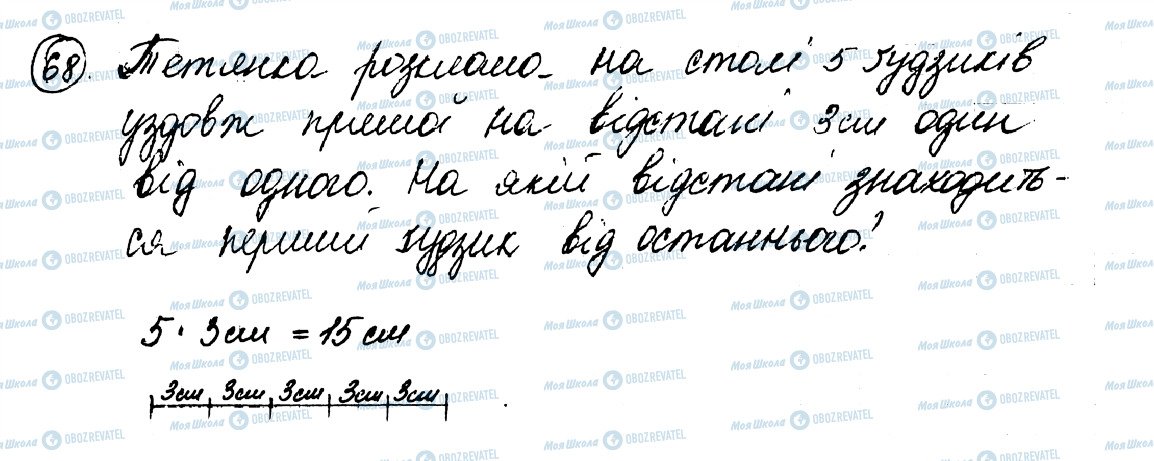 68. Тетянка розклала на столі 5 ґудзиків
уздовж прямої на відстані 3см один
від одного. На якій відстані знаходить-
ся перший ґудзик від останнього?
5 · 3см = 15 см
3см 3см 3см 3см 3см